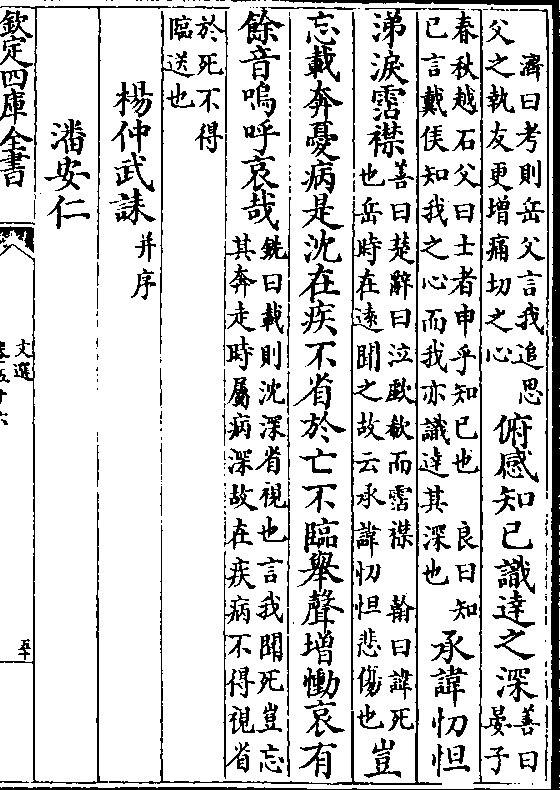 濟曰考則岳父言我追思
父之執友更增痛切之心
俯感知已識達之深
善曰
晏子
春秋越石父曰士者申乎知已也　良曰知
已言戴侯知我之心而我亦識達其深也
承諱忉怛
涕淚霑襟
善曰楚辭曰泣歔欷而霑襟　翰曰諱死
也岳時在逺聞之故云承諱忉怛悲傷也
豈
忘載奔憂病是沈在疾不省於亡不臨舉聲增慟哀有
餘音嗚呼哀哉
銑曰載則沈深省視也言我聞死豈忘
其奔走時屬病深故在疾病不得視省
於死不得
臨送也
楊仲武誄
并序
潘安仁
欽定四庫全書
文選
卷五十六